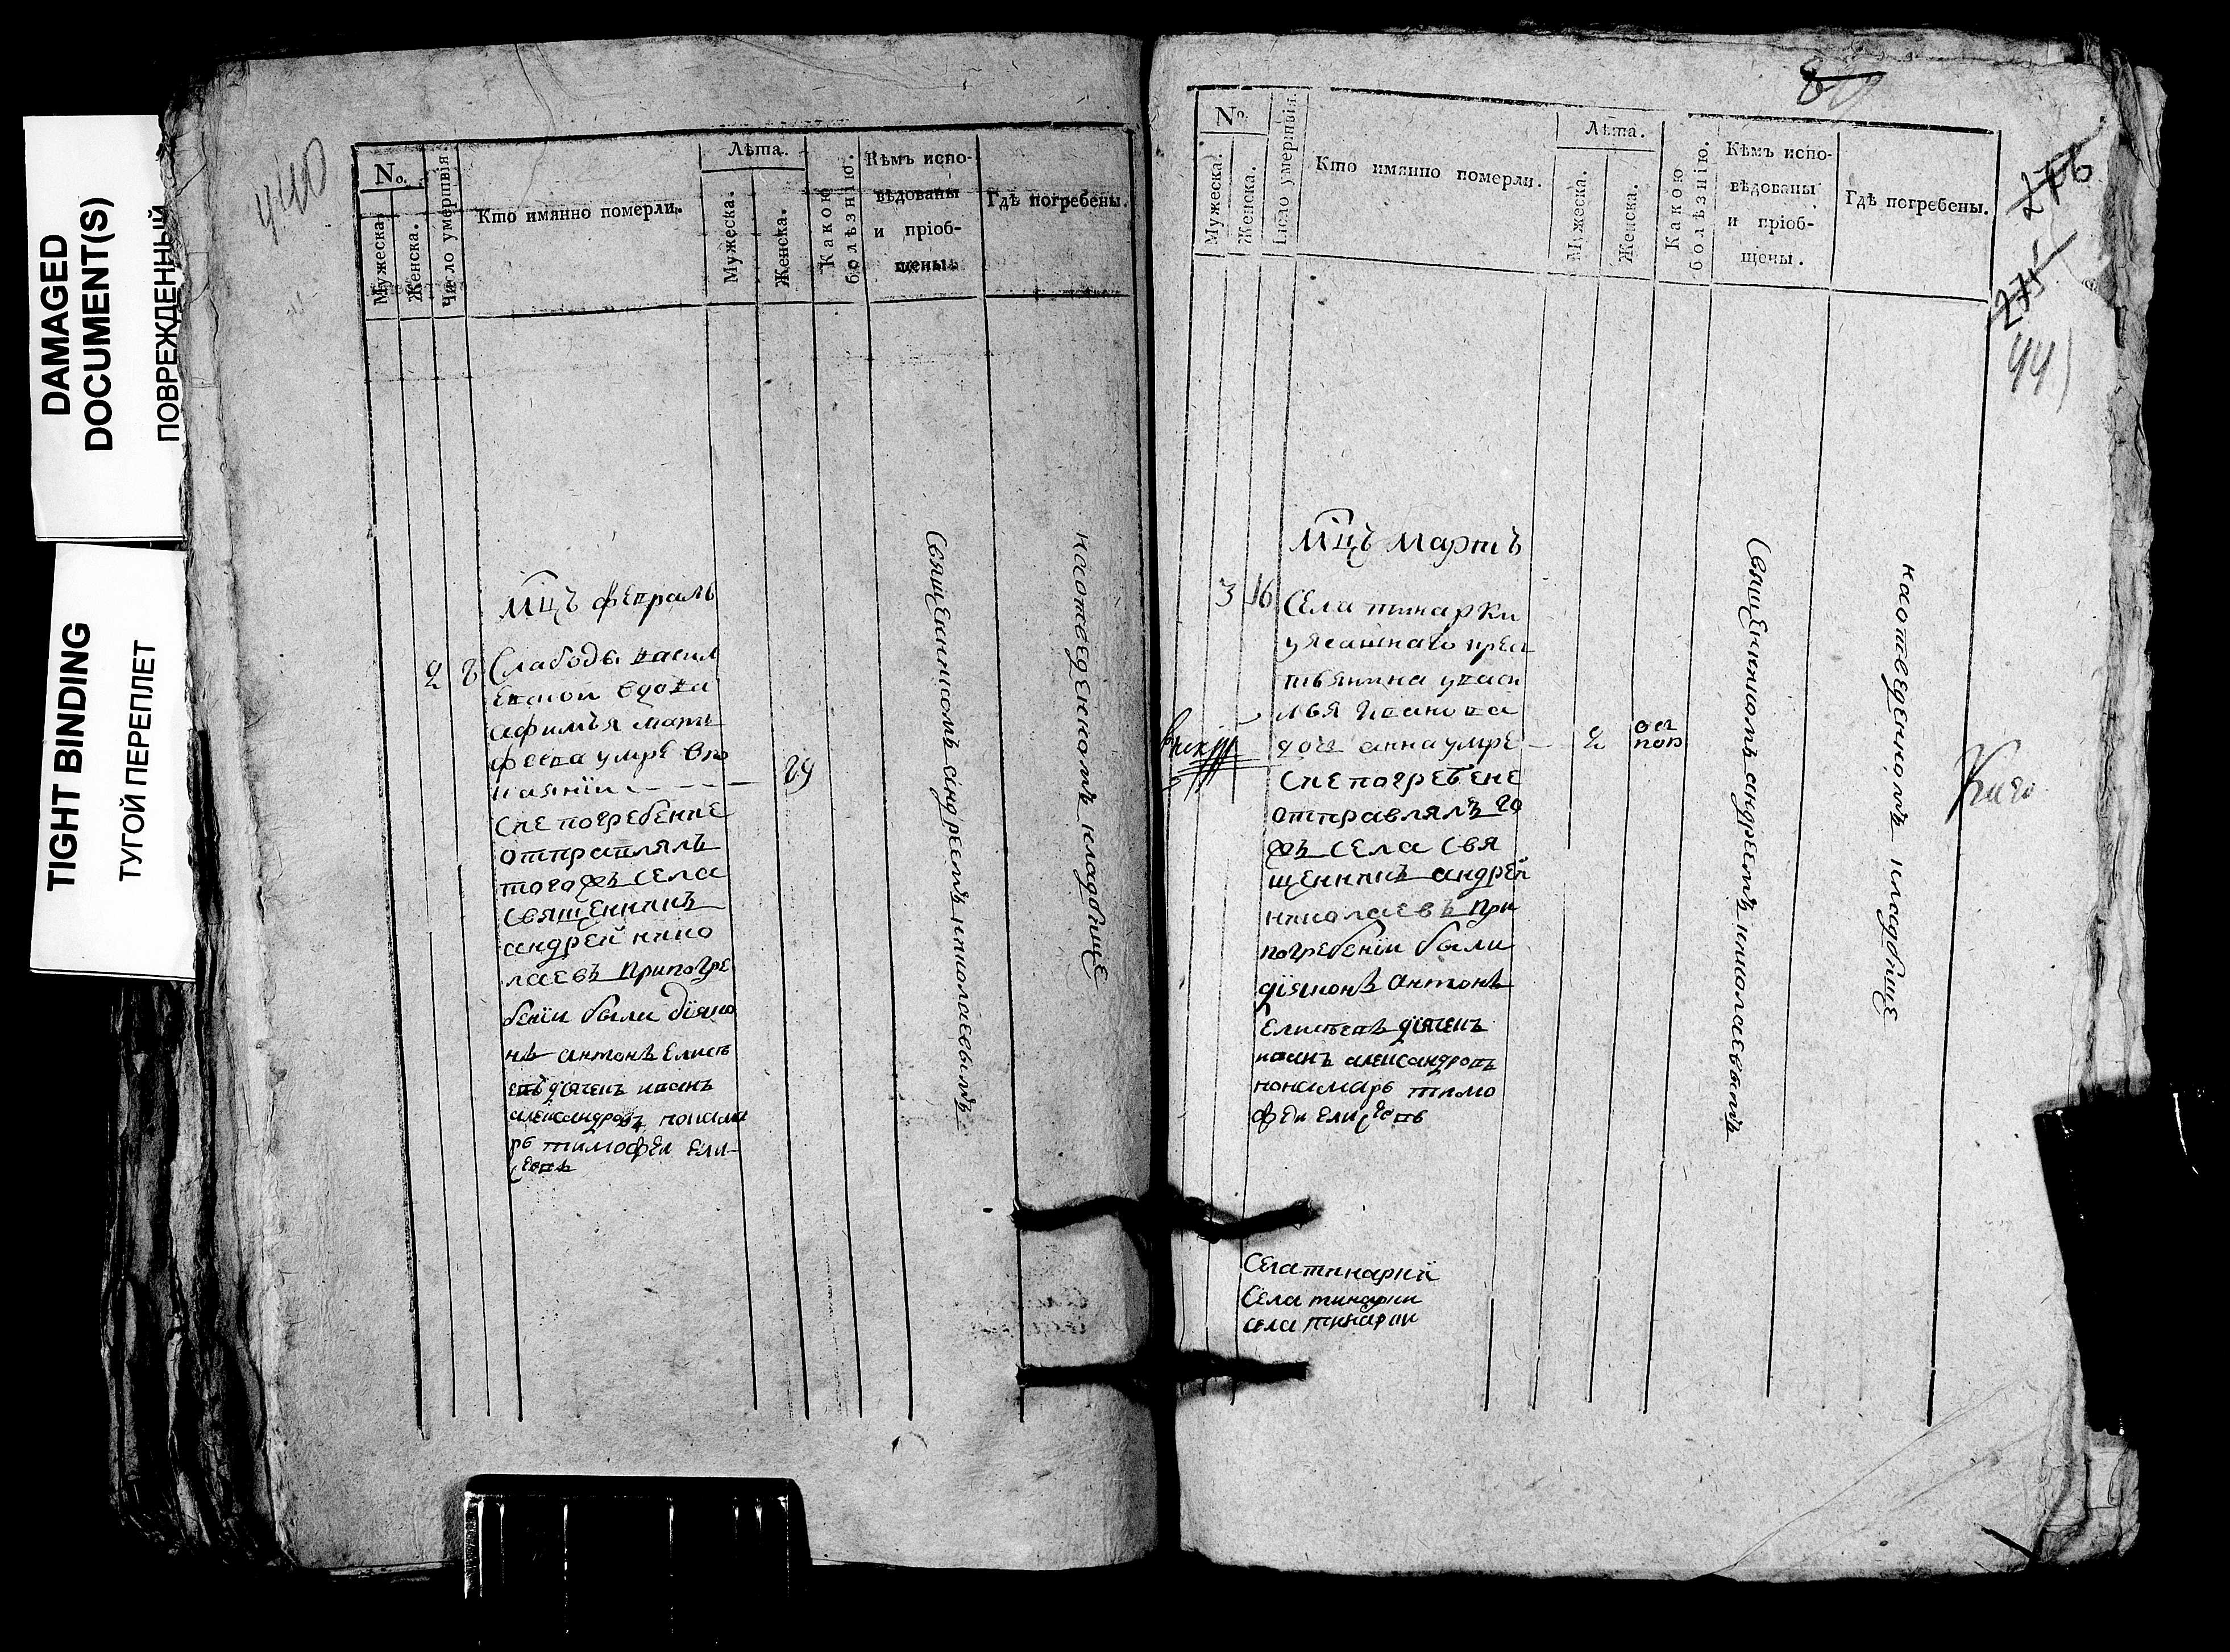 DAMAGED
DOCUMENT(S)
ПОВРЕЖДЕННЫЙ
TIGHT BINDING
ТУГОЙ ПЕРЕПЛЕТ
440
No.
Мужеска.
Женска.
Число умертвія.
Кто имянно померли.
Лѣта.
Мужеска.
Женска.
Какою
болѣзнію.
Кѣмъ испо-
вѣдованы
и пріоб-
щены.
Гдѣ погребены.
Мцъ февраль
2 8 Слабоды васил
евской вдова
афимья мать
феева умре
паянїи 89
сие погребение
отправлялъ
тогожъ села
священникъ
андрей нико
лаевъ при погре
бенїи были дїяко
нъ антонъ Елисѣ
евъ дїячекъ иванъ
александровъ понама
рь тимофеи Ели-
сеевъ
Священникомъ андреемъ николаевымъ
на отведенномъ кладбище
8
276
275
441
No.
Мужеска.
Женска.
Число умертвія.
Кто имянно померли.
Лѣта.
Мужеска.
Женска.
Какою
болѣзнію.
Кѣмъ испо-
вѣдованы
и пріоб-
щены.
Гдѣ погребены.
Мцъ мартъ
3 16 Села тинарки
у ясашнаго крес
тьянина у васи
лья иванова
дочь анна умре 2 ос
пою
сие погребене
отправлялъ то
жъ села свя
щенникъ андрей
николаевъ при
погребенїи были
дїяконъ антонъ
Елисеевъ дїячекъ
иванъ александровъ
понамарь тимо
феи елисеевъ
Священникомъ андреемъ николаевымъ
на отведенномъ кладбище
Села тинарки
Села тинарки
села тинарки